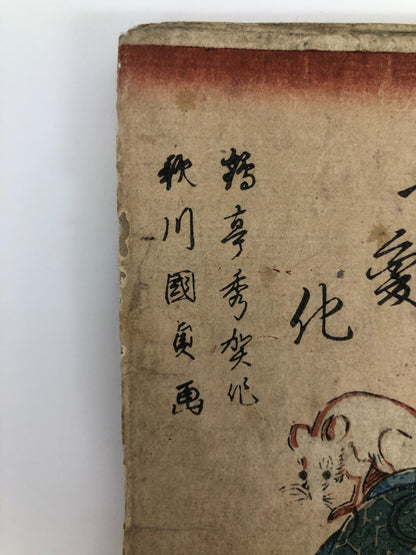 変
化
鶴亭秀賀作
歌川國貞画